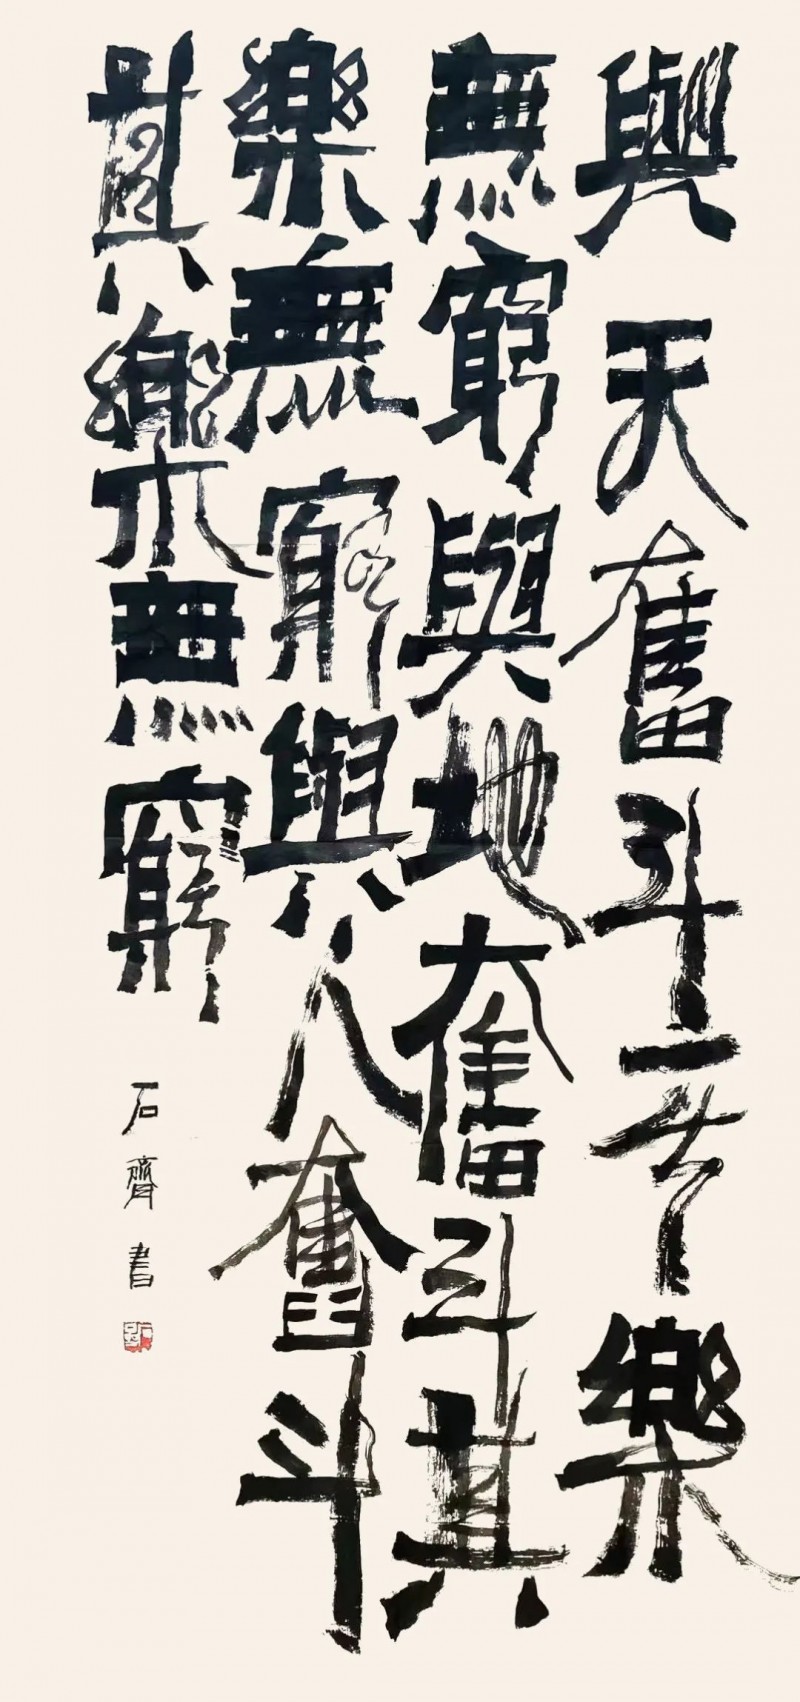 與天奮斗亓樂
無窮與地奮斗其
樂無窮與人奮斗
其樂無窮
石齊書